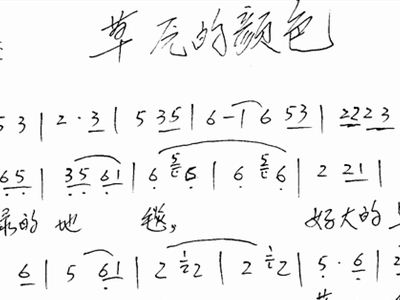 草原的颜色
5 3 | 2 · 3 | 5 35 | 6 - 1 6 53 | 22 2 3
65 | 35 61 | 6 5 6 | 6 5 6 | 2 21 |
绿的 地 毯, 好大的
6 | 5 61 | 2 1 2 2 | 2 1 2 2 | 5 · 6 | 2